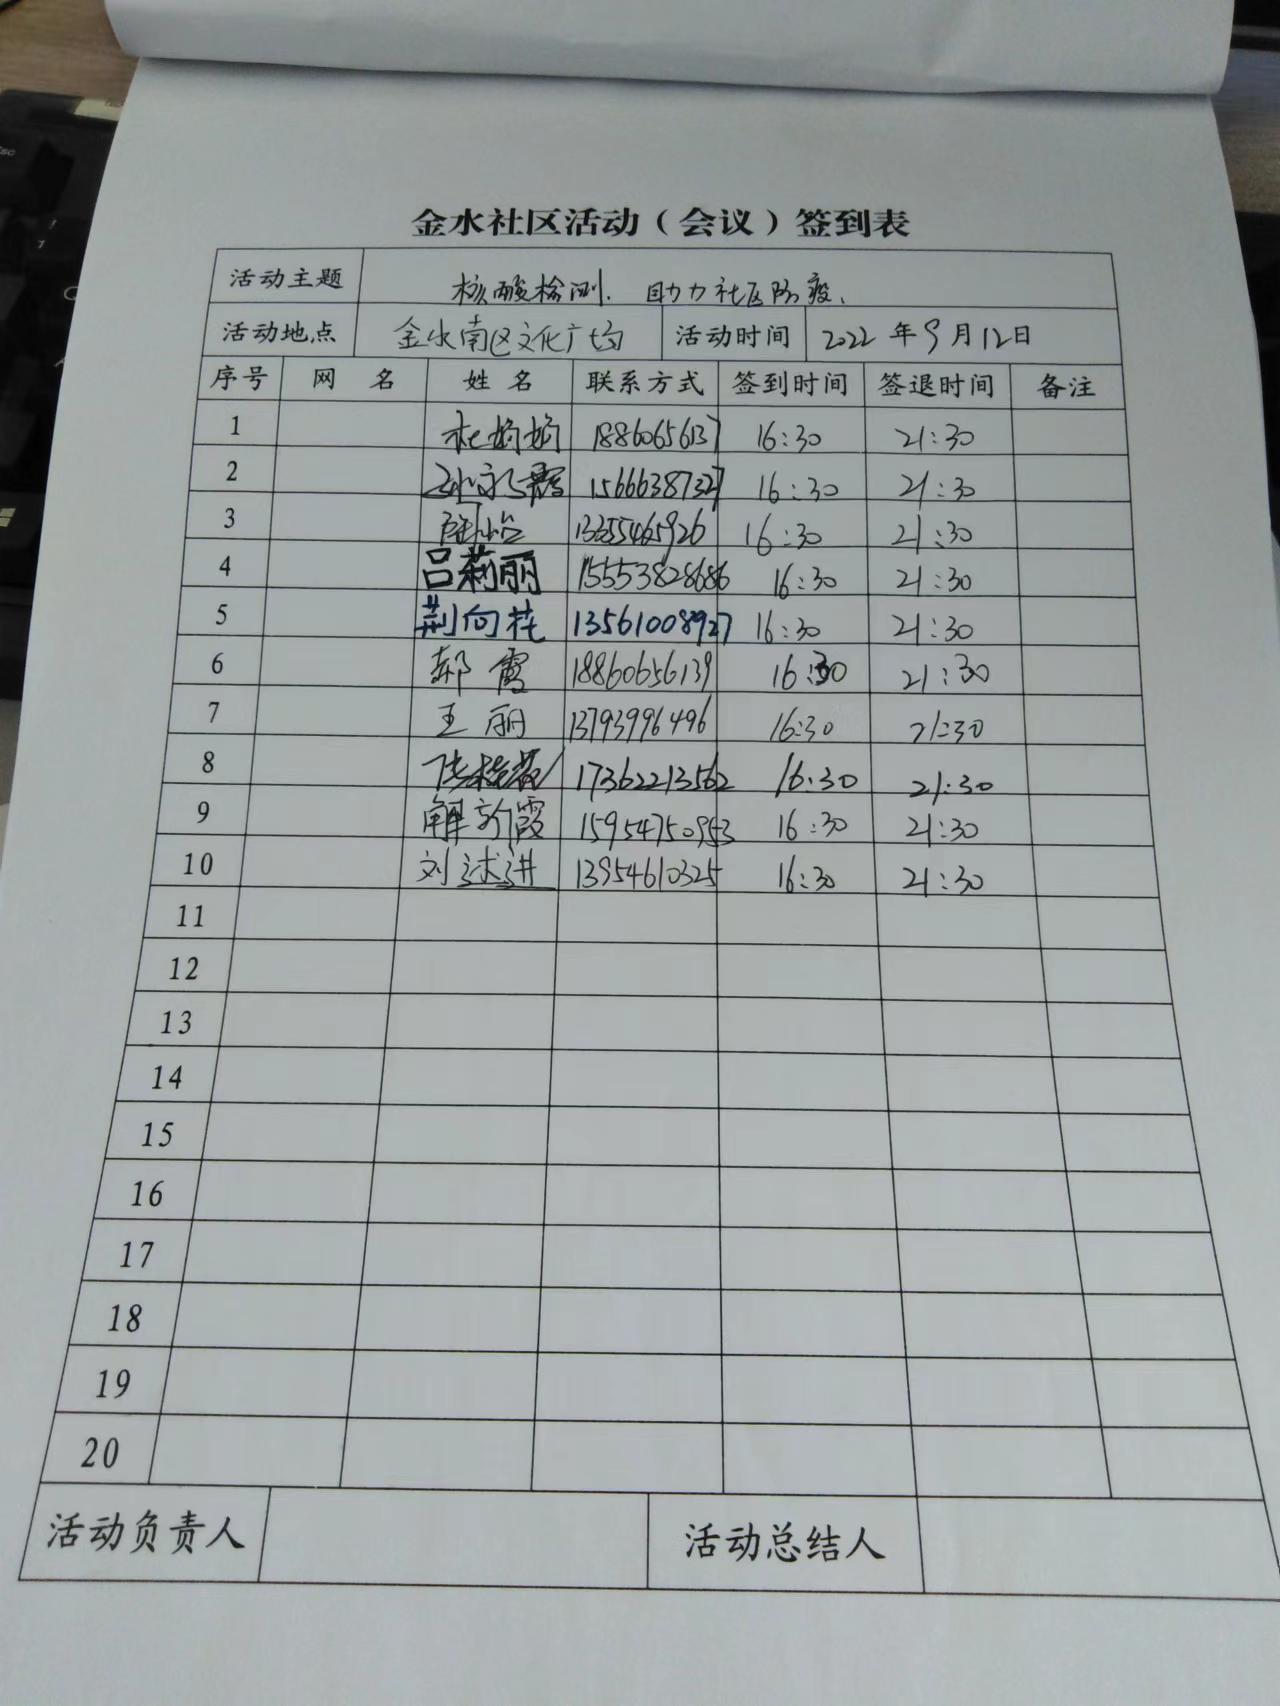 金水社区活动（会议）签到表
活动主题 核酸检测. 助力社区防疫.
活动地点 金水南区文化广场 活动时间 2022年9月12日
序号 网名 姓名 联系方式 签到时间 签退时间 备注
1 杜娟娟 18860656137 16:30 21:30
2 15666387327 16:30 21:30
3 13255465926 16:30 21:30
4 吕莉丽 15553828686 16:30 21:30
5 荆向花 13561008927 16:30 21:30
6 郝霞 18860656139 16:30 21:30
7 王丽 13793996496 16:30 21:30
8 17362213562 16:30 21:30
9 解新霞 15954750953 16:30 21:30
10 刘述进 13954610325 16:30 21:30
11
12
13
14
15
16
17
18
19
20
活动负责人 活动总结人